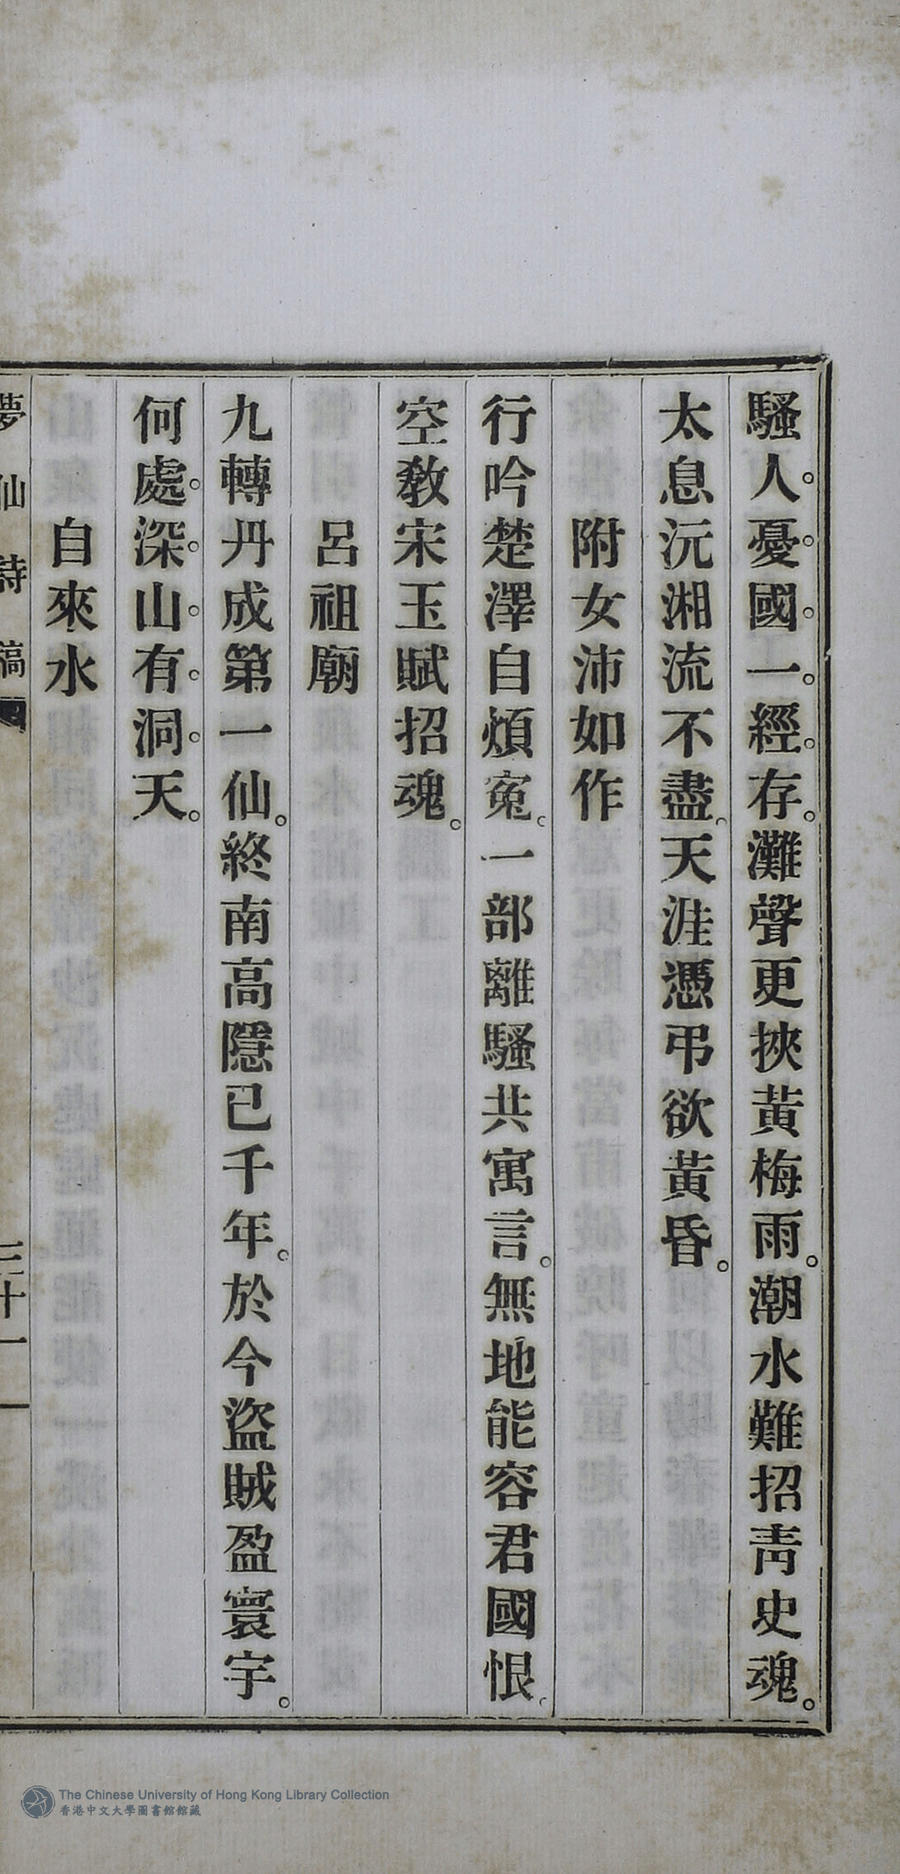 騷人。憂。國。一。經。存。灘聲更挾黃梅雨。潮水難招靑史魂。
太息沅湘流不盡。天涯憑弔欲黃昏。
附女沛如作
行吟楚澤自煩寃。一部離騷共寓言。無地能容君國恨。
空敎宋玉賦招魂。
呂祖廟
九轉丹成第一仙。終南高隱已千年。於今盜賊盈寰宇。
何處。深。山。有。洞。天。
自來水
夢仙詩稿 三十一
The Chinese University of Hong Kong Library Collection
香港中文大學圖書館館藏